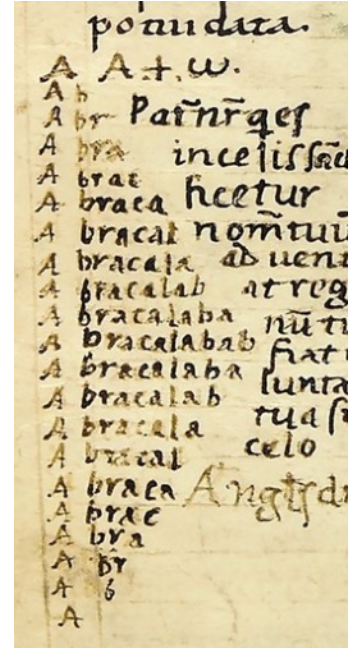 potui data.
A A + ω.
A b
A br Pat̄ nr̄ q es
A bra in celis sāc
A brac
A braca ficetur
A bracal nom̄ tuū
A bracala ad ueni
A bracalab at reg
A bracalaba nū tu
A bracalabab fiat u
A bracalaba lunta
A bracalab tua
A bracala celo
A bracal
A braca Angl̄s
A brac
A bra
A br
A b
A